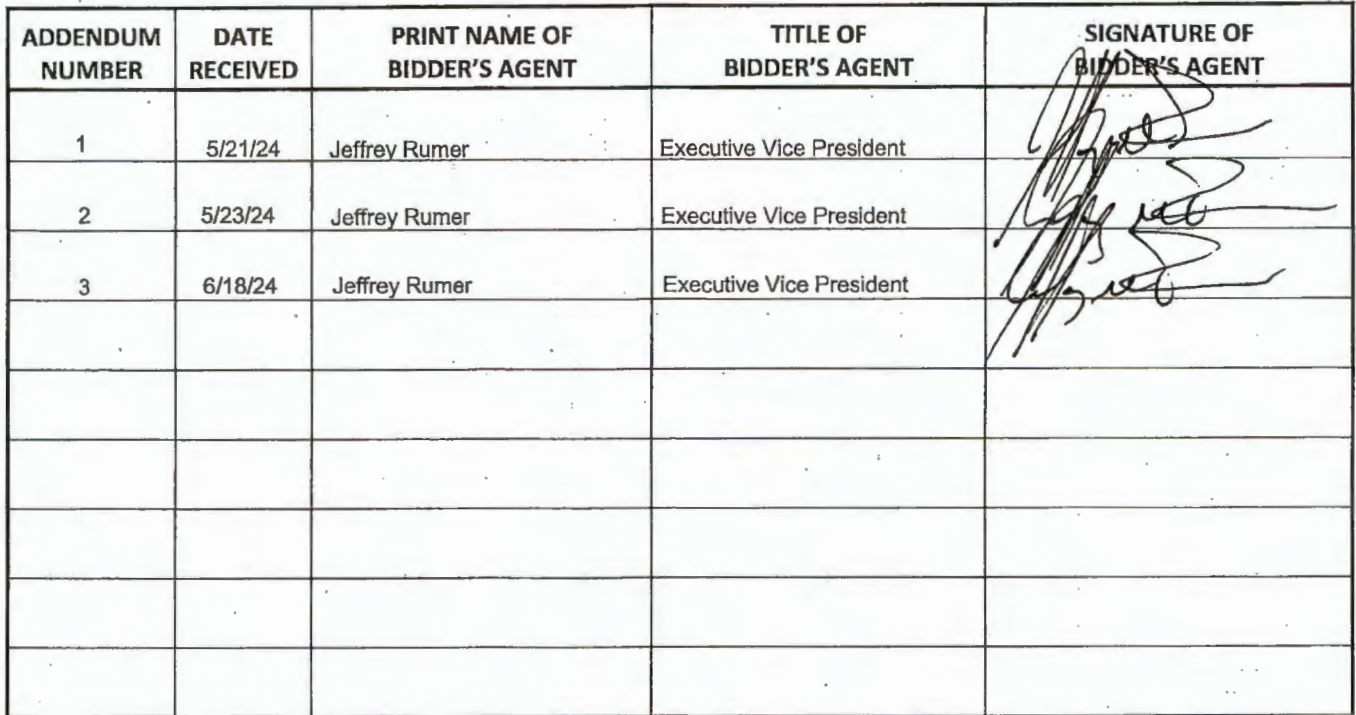 ADDENDUM NUMBER DATE RECEIVED PRINT NAME OF BIDDER'S AGENT TITLE OF BIDDER'S AGENT SIGNATURE OF BIDDER'S AGENT
1 5/21/24 Jeffrey Rumer Executive Vice President
2 5/23/24 Jeffrey Rumer Executive Vice President
3 6/18/24 Jeffrey Rumer Executive Vice President